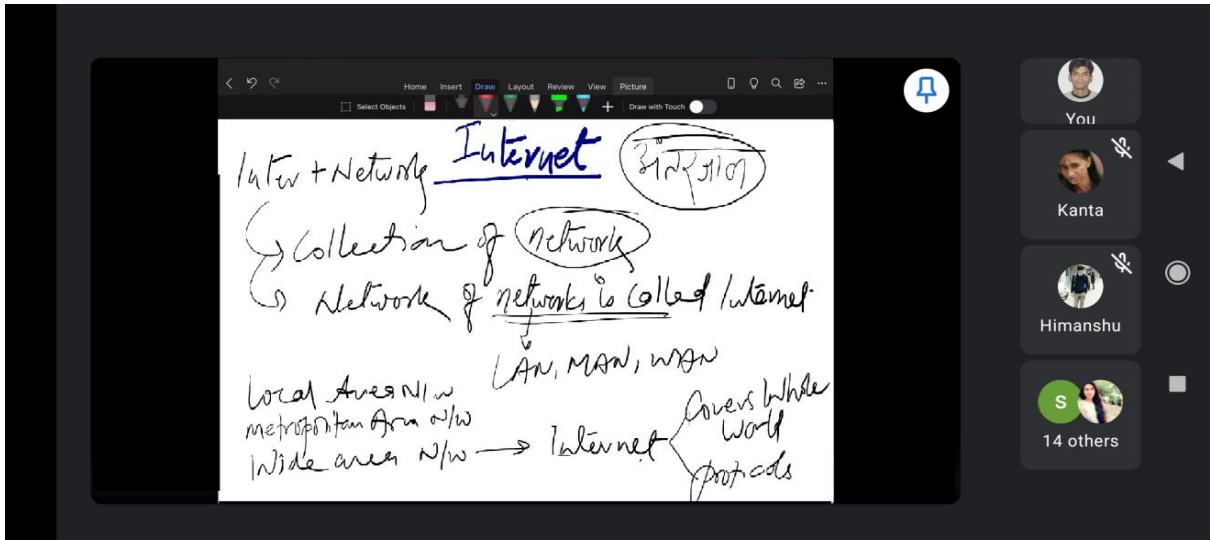 Home Insert Draw Layout Review View Picture
Select Objects Draw with Touch
Internet
Inter + Network
अंतरजाल
Collection of network
Network of networks is called Internet.
LAN, MAN, WAN
Local Area N/w
Metropolitan Area N/W
Wide area N/w → Internet
Covers Whole
World
protocols
You
Kanta
Himanshu
S
14 others